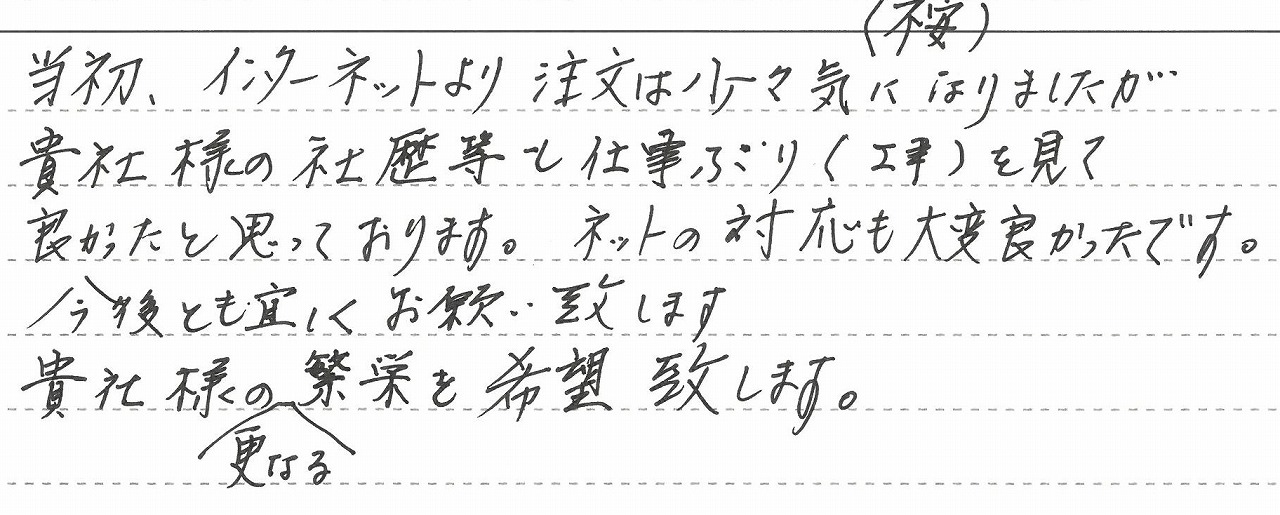 (不安)
当初、インターネットより注文は少々気になりましたが
貴社様の社歴等と仕事ぶり(工事)を見て
良かったと思っております。ネットの対応も大変良かったです。
今後とも宜しくお願い致します
貴社様の繁栄を希望致します。
更なる